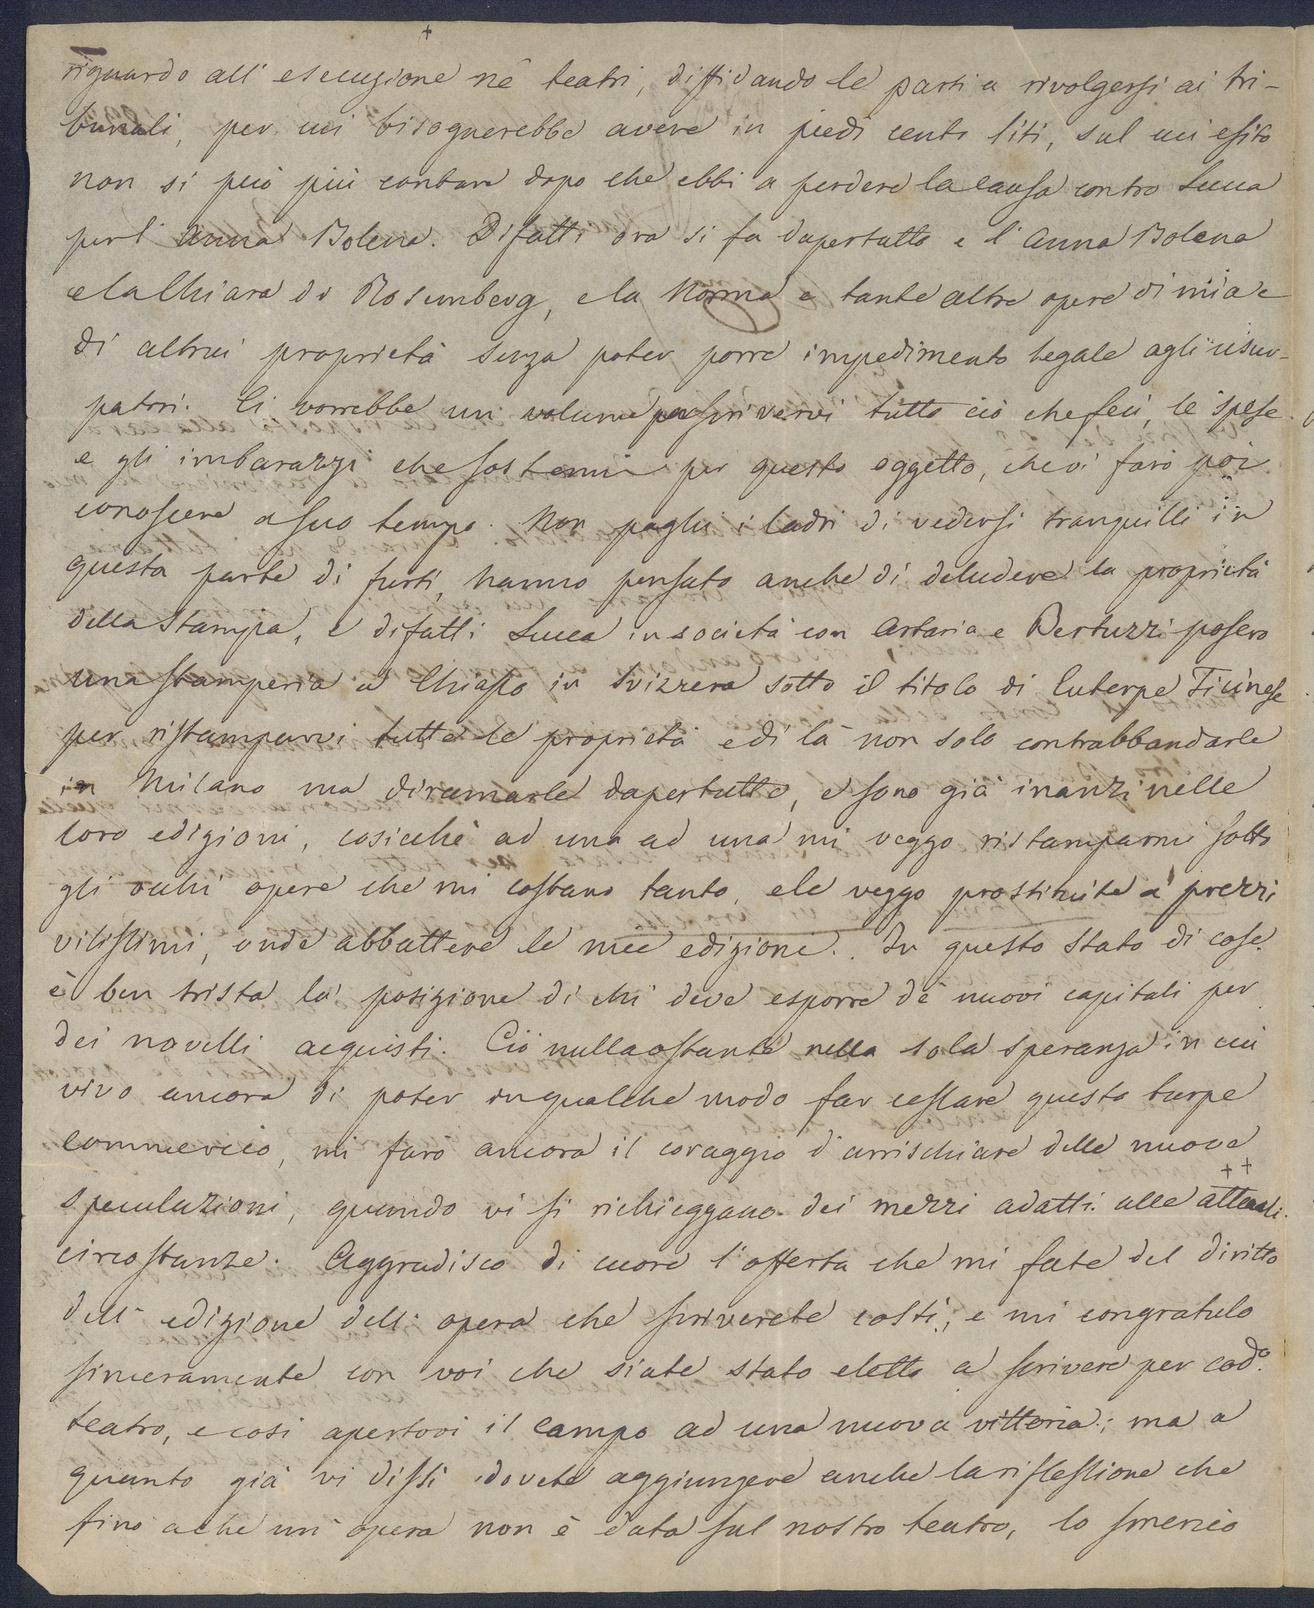 riguardo all' esecuzione nè teatri, diffidando le parti a rivolgersi ai tri-
bunali, per cui bisognerebbe avere in piedi cento liti, sul cui esito
non si può più contare dopo che ebbi a perdere la causa contro Lucca
per l' Anna Bolena. Difatti ora si fa dapertutto e l' Anna Bolena
e la Chiara di Rosemberg, e la Norma e tante altre opere di mia e
di altrui proprietà senza poter porre impedimento legale agli usur-
patori. Ci vorrebbe un volume per scrivervi tutto ciò che feci, le spese
e gli imbarazzi che sostenni per questo oggetto, che vi farò poi
conoscere a suo tempo. Non paghi i ladri di vedersi tranquilli in
questa parte di furti, hanno pensato anche di deludere la proprietà
della Stampa, e difatti Lucca in società con Artaria e Bertuzzi posero
una stamperia a Chiasso in Svizzera sotto il titolo di Euterpe Ticinese
per ristamparvi tutte le proprietà e di là non solo contrabbandarle
in Milano ma diramarle dapertutto, e sono già inanzi nelle
loro edizioni, cosicchè ad una ad una mi veggo ristamparmi sotto
gli occhi opere che mi costano tanto, e le veggo prostituite a prezzi
vilissimi, onde abbattere le mie edizioni. In questo stato di cose
è ben trista la posizione di chi deve esporre de' nuovi capitali per
dei novelli acquisti. Ciò nullaostante nella sola speranza in cui
vivo ancora di poter in qualche modo far cessare questo turpe
commercio, mi farò ancora il coraggio d' arrischiare delle nuove
++
speculazioni, quando vi si richieggano dei mezzi adatti alle attuali
circostanze. Aggradisco di cuore l' offerta che mi fate del diritto
dell' edizione dell' opera che scriverete costì; e mi congratulo
sinceramente con voi che siate stato eletto a scrivere per cod.o
teatro, e così apertovi il campo ad una nuova vittoria; ma a
quanto già vi dissi dovete aggiungere anche la riflessione che
fino a che un' opera non è data sul nostro teatro, lo smercio